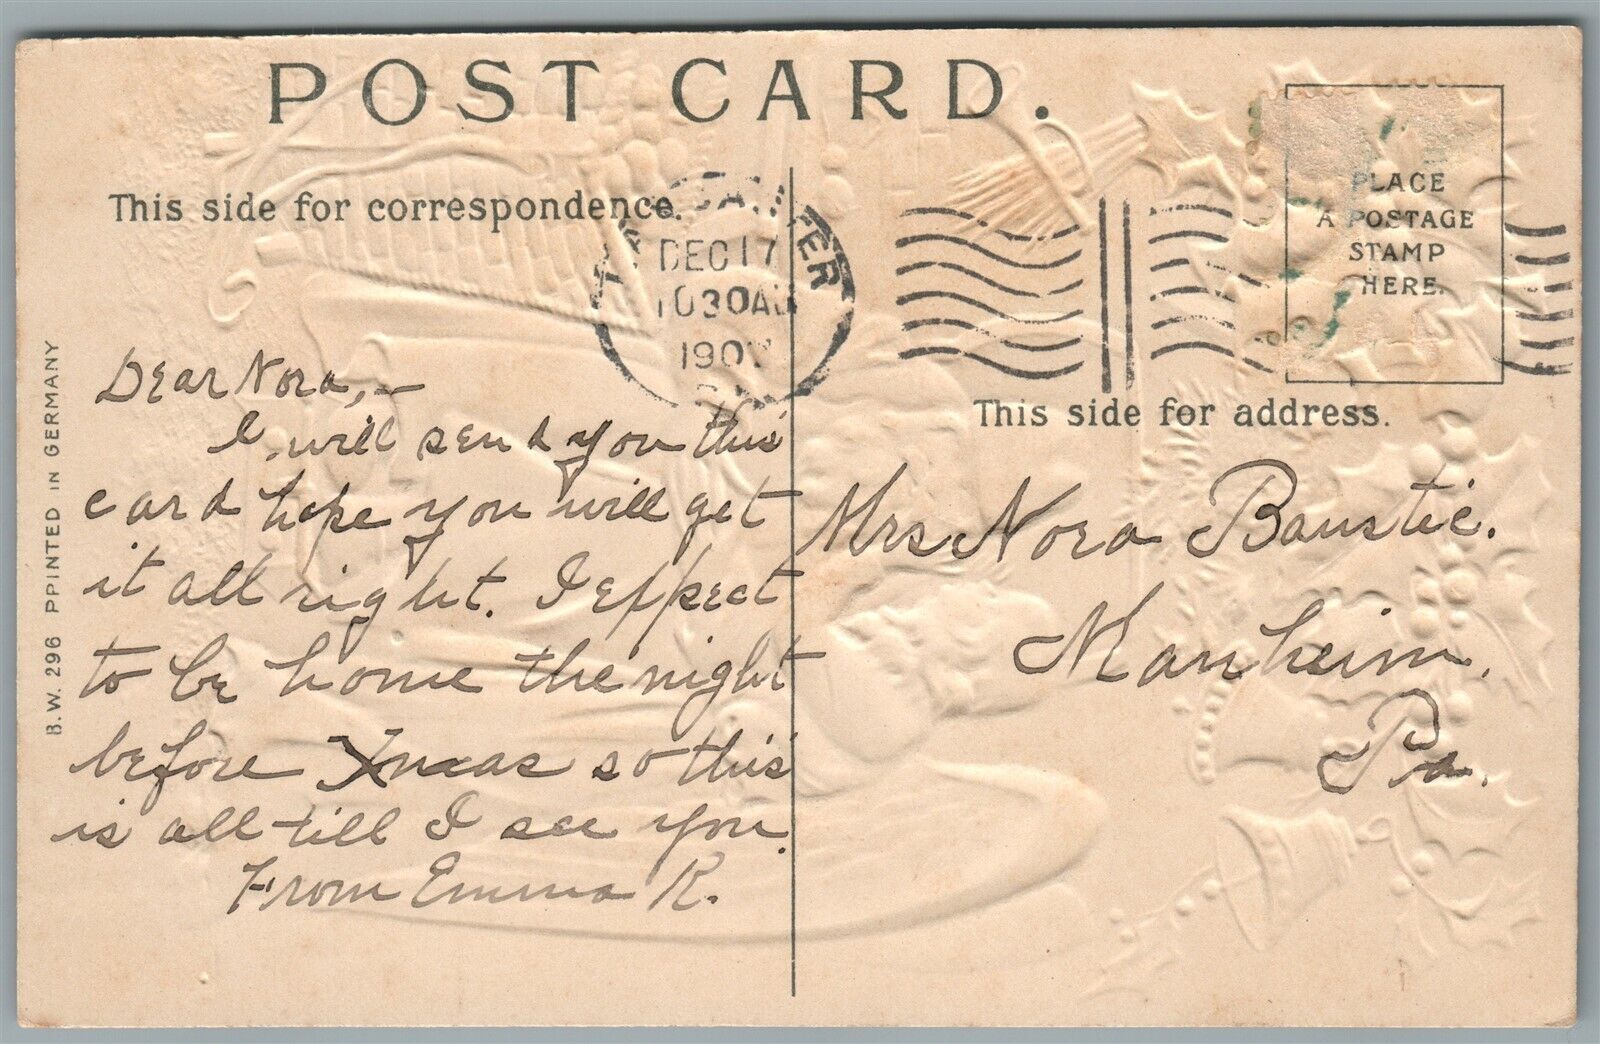 POST CARD.
This side for correspondence.
DEC 17
1030 AM
PLACE
A POSTAGE
STAMP
HERE.
This side for address.
B.W. 296 PPINTED IN GERMANY
Dear Nora,—
I will send you this
card hope you will get
it all right. I expect
to be home the night
before Xmas so this
is all till I see you.
From Emma K.
Mrs Nora Baustic.
Manheim,
Pa.